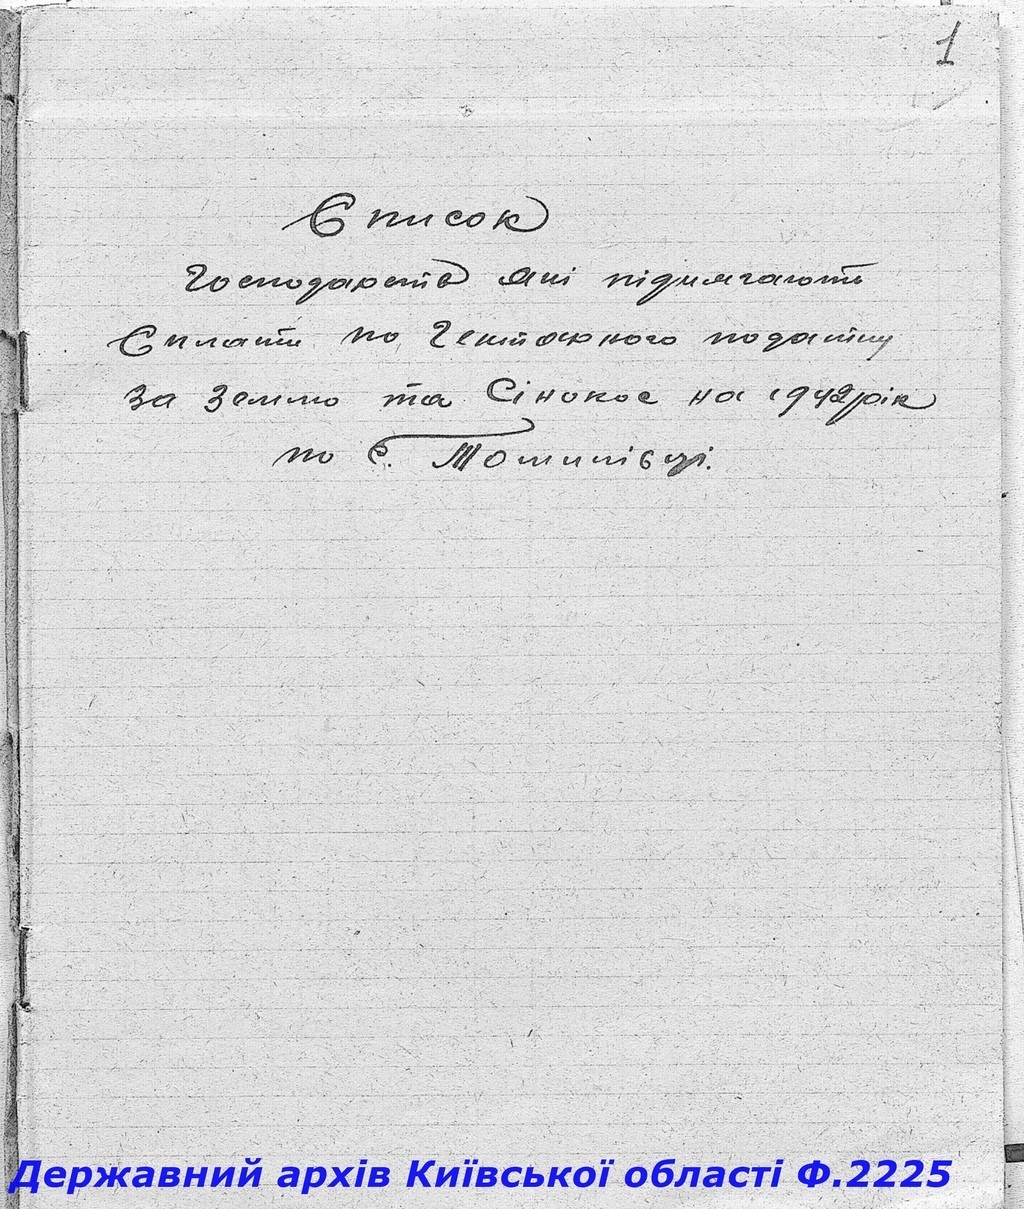 1
Список
Господарств які підлягають
Сплати по Гектарного податку
за Землю та Сінокос на 1942 рік
по с. Томилівці.
Державний архів Київської області Ф.2225